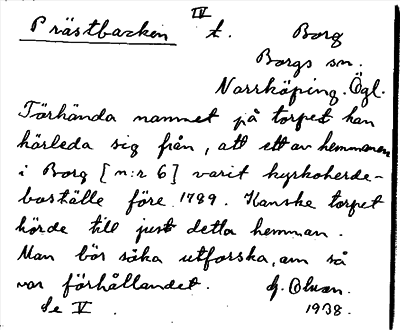 IV
Prästbacken t. Borg
Borgs sn.
Norrköping. Ögl.
Törhända namnet på torpet kan
härleda sig från, att ett av hemmanen
i Borg [n:r 6] varit kyrkoherde-
boställe före 1789. Kanske torpet
hörde till just detta hemman.
Man bör söka utforska, om så
var förhållandet. G. Olson.
Se V. 1938.